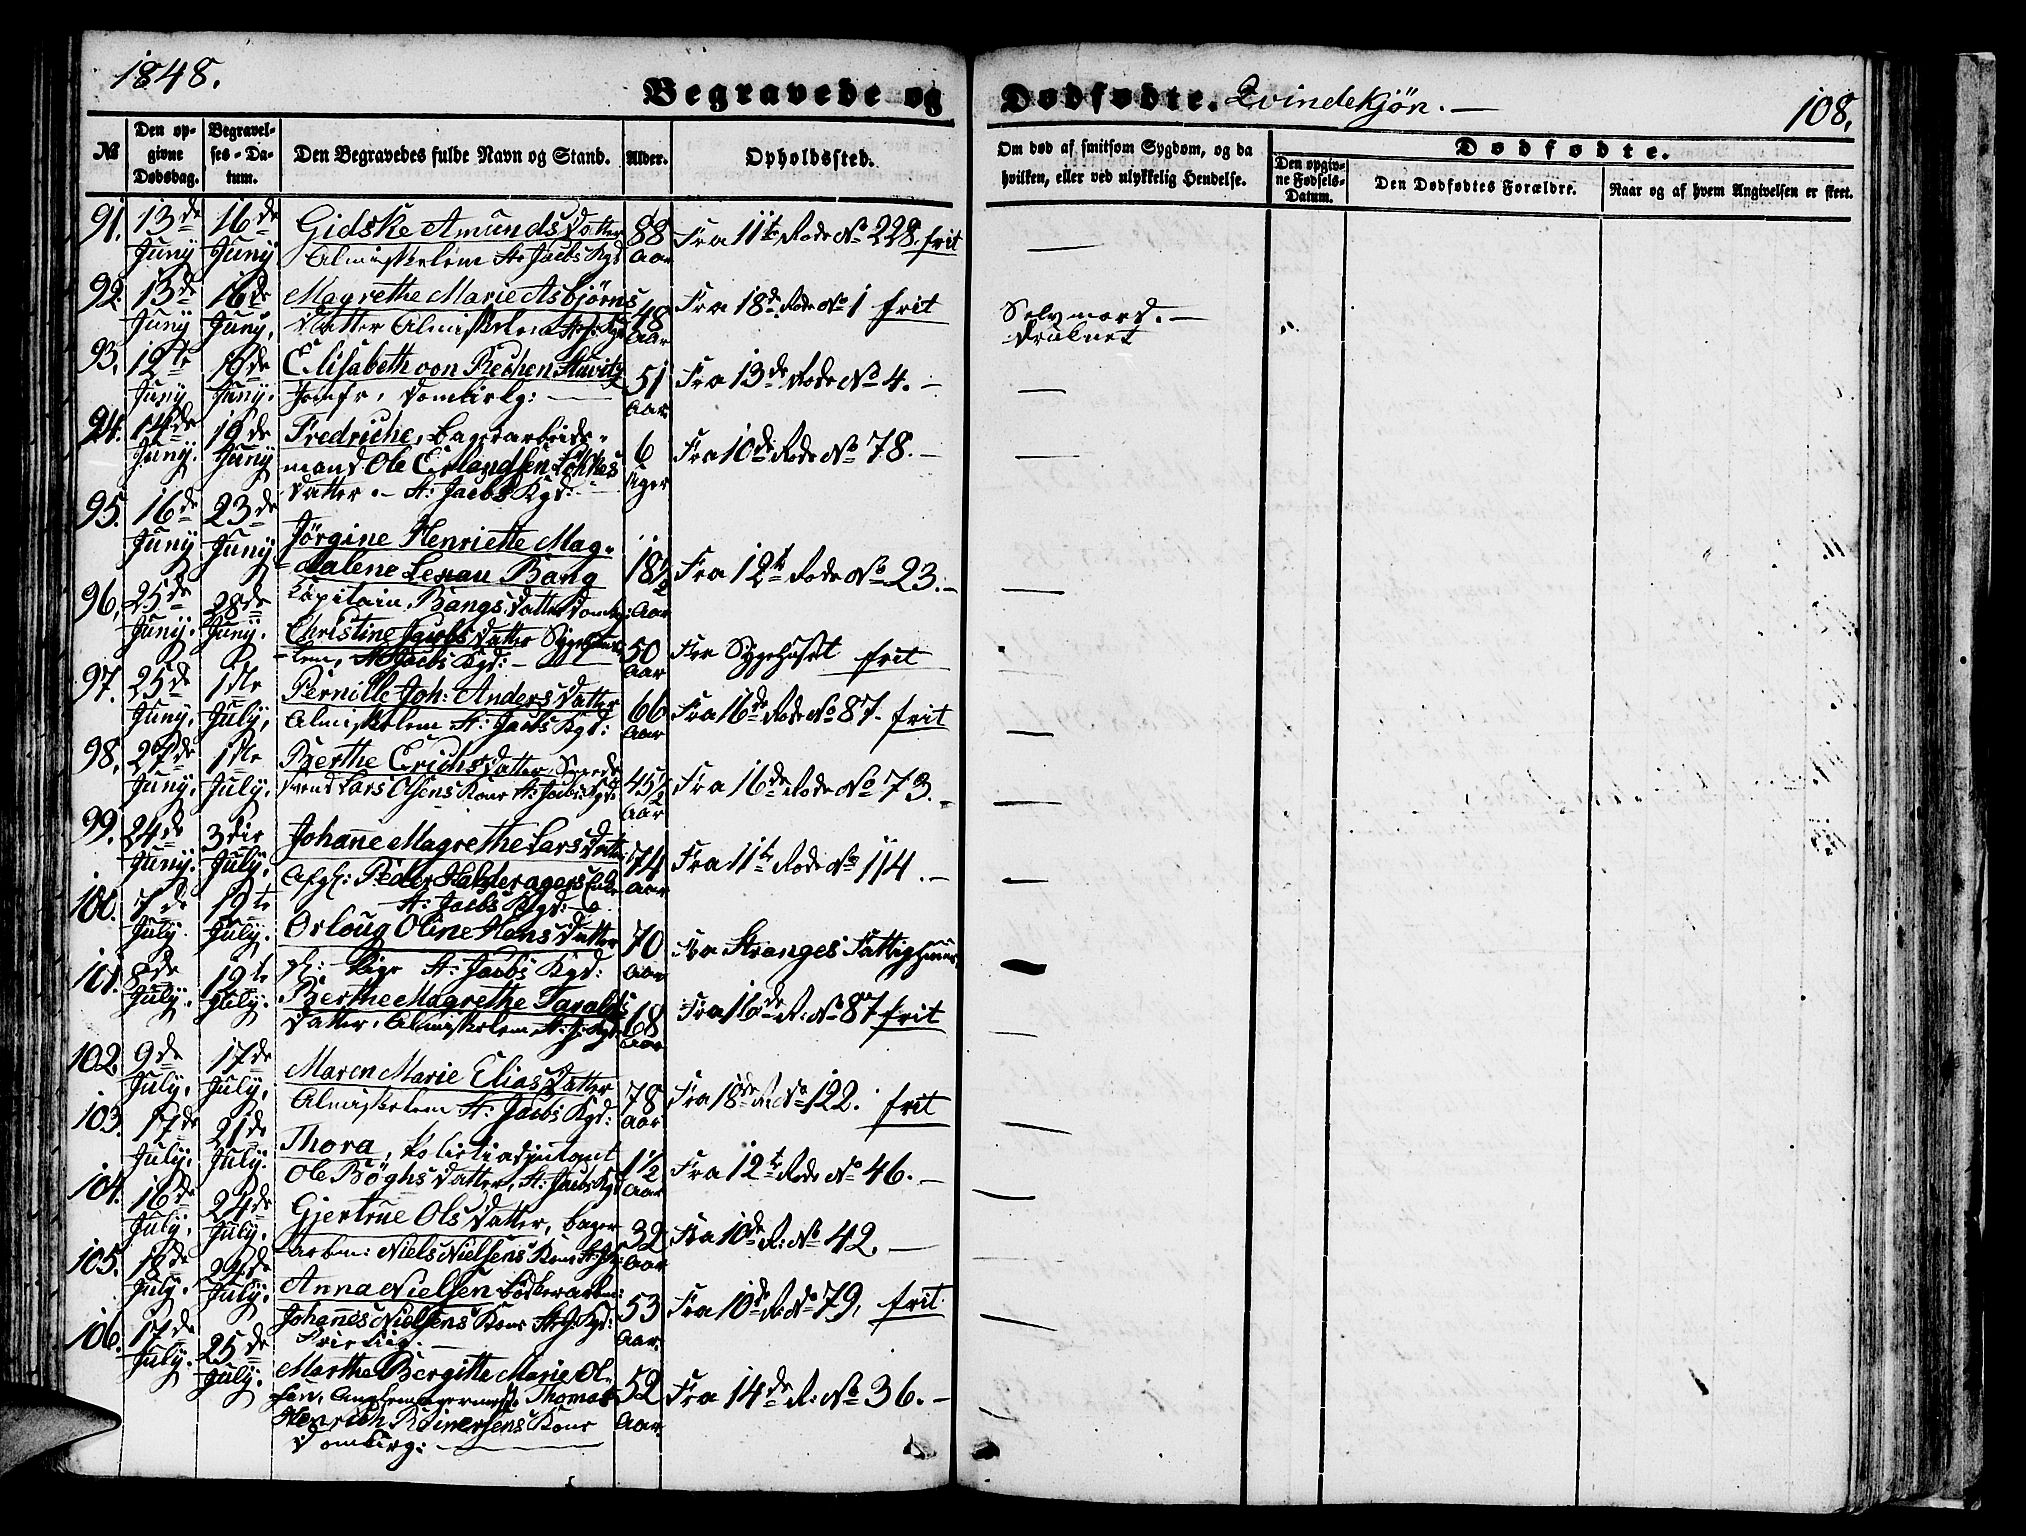 1848.
Begravede og Dødfødte. Qvindekjøn. —
108.
№
Den opgivne Dødsdag.
Begravelses-Datum.
Den Begravedes fulde Navn og Stand.
Alder.
Opholdssted.
Om død af smitsom Sygdom, og da hvilken, eller ved ulykkelig Hendelse.
Dødfødte.
Den opgivne Fødsels-Datum.
Den Dødfødtes Forældre.
Naar og af hvem Angivelsen er skeet.
91. 13de Juny 16de Juny Gidske Amunds Datter
Almisselem St: Jacobs Kgd 88 Aar Fra 11te Rode No 228. frit —
92. 13de Juny 16de Juny. Magrethe Marie Asbjørns
Datter Almisselem St: J: Kgd 48 Aar Fra 18de Rode No 1 frit Selvmord. —
druknet
93. 12te Juny 19de Juny. Elisabeth von Rechen
Jomfr, Domkirkg: — 51 Aar Fra 13de Rode No 4. — —
94. 14de Juny. 19de Juny Fredriche, bagerarbeids-
mand Ole Erlandsen
Datter. — St: Jacobs Kgd: — 6 Uger Fra 10de Rode No 78. — —
95. 16de Juny 23de Juny Jørgine Henriette Mag-
dalene Bang
Capitain Bangs Datter Domkg: 18½ Aar Fra 12te Rode No 23. — —
96. 25de Juny. 28de Juny. Christine Jacobs Datter
lem, St Jacobs Kgd: — 50 Aar Fra Sygehuset frit
97. 25de Juny. 1ste July, Pernille Joh: Anders Datter
Almisselem St: Jacobs Kgd: 66 Aar Fra 16de Rode No 87. frit —
98. 27de Juny. 1ste July. Berthe Erichs Datter,
Lars Olsens Kone St: Jacobs Kgd: 45½ Aar Fra 16de Rode No 73. — —
99. 24de Juny. 3die July. Johanne Magrethe Lars Datter
Afg: Peder Enke
St: Jacobs Kgd: — 74 Aar Fra 11te Rode No 114. — —
100. 7de July. 12te July. Orloug Oline Hans Datter
Pige St: Jacobs Kgd: 70 Aar Fra Stranges Fattighuus —
101. 8de July. 12te July. Berthe Magrethe Taralds
Datter, Almisselem St: J: Kgd 68 Aar Fra 16de R: No 87 frit —
102. 9de July, 17de July, Maren Marie Elias Datter
Almisselem St: Jacobs Kgd: 78 Aar Fra 18de R: No 122. frit —
103. 17de July. 21de July. Thora, Politiadjutant
Ole Bøghs Datter, St: Jacobs Kgd 1½ Aar Fra 12te Rode No 46. — —
104. 16de July. 24de July. Gjertrue Ols Datter, bager
arben: Niels Nielsens Kone St: J: 32 Aar Fra 10de R: No 42. — —
105. 18de July. 24de July. Anna Nielsen bødkerarbei:
Johannes Nielsens Kone St: J: Kgd:
53 Aar. Fra 10de R: No 79, frit —
106. 17de July. 25de July. Marthe Bergitte Marie Ol-
sen, Thomas
Henrich Reinersens Kone
Domkirg: — 52 Aar. Fra 14de R: No 36. — —